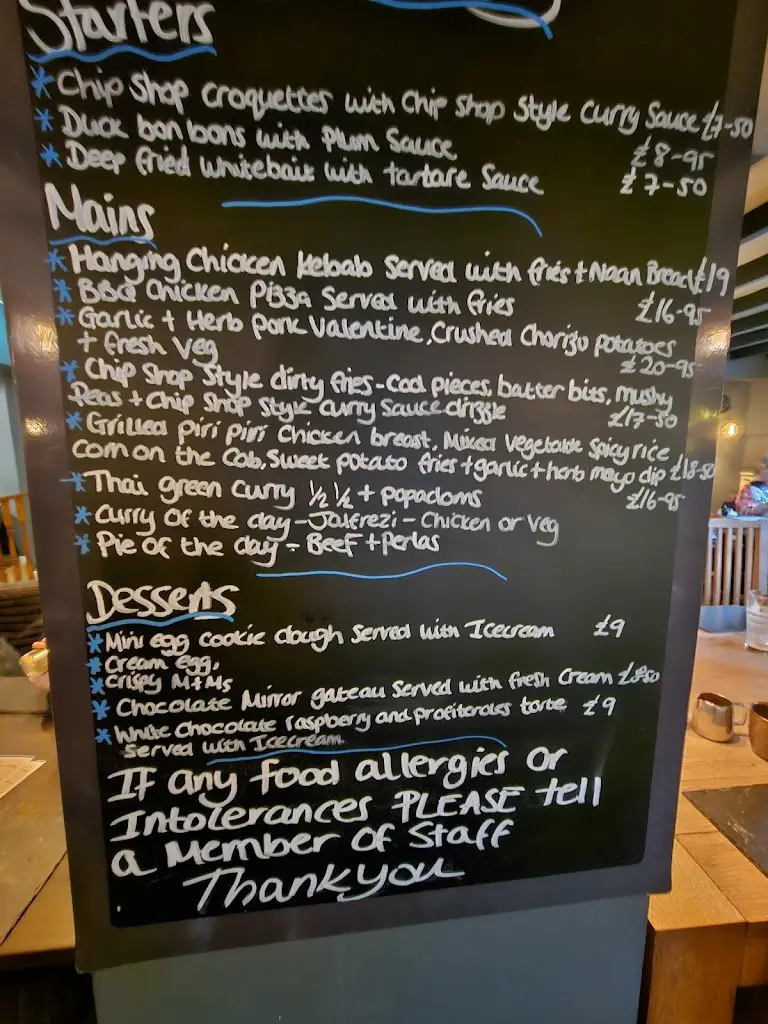 Starters
* Chip Shop croquettes with Chip Shop Style Curry Sauce £7-50
* Duck bon bons with Plum Sauce £8-95
* Deep fried whitebait with tartare Sauce £7-50
Mains
* Hanging Chicken Kebab Served with fries + Naan Bread £19
* BBQ Chicken Pizza Served with fries £16-95
* Garlic + Herb pork Valentine, Crushed Chorizo potatoes
+ fresh Veg £20-95
* Chip Shop Style dirty fries - Cod pieces, batter bits, mushy
Peas + Chip Shop Style Curry Sauce drizzle £17-50
* Grilled Piri Piri Chicken breast, Mixed Vegetable Spicy rice
corn on the Cob, Sweet potato fries + garlic + herb mayo dip £18-50
* Thai green Curry 1/2 1/2 + popadoms £16-95
* Curry of the day - Jalfrezi - Chicken or Veg
* Pie of the day - Beef + perlas
Desserts
* Mini egg cookie dough Served with Icecream £9
* Cream egg,
* Crispy M+Ms
* Chocolate Mirror gateau Served with fresh Cream
* White Chocolate raspberry and profiteroles torte £9
Served with Icecream
If any food allergies or
Intolerances PLEASE tell
a Member of Staff
Thankyou